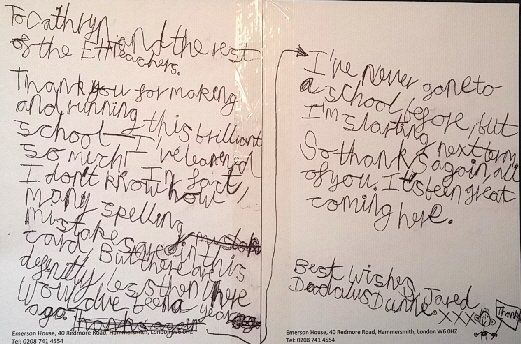 To Cathryn and the rest
of the E.H. teachers.
Thank you for making
and running this brilliant
school I've learned
so much. In fact,
I don't know how
many spelling
mistakes are in this
card. But there are
less then there
would've been a year
ago. Thanks again
I've never gone to
a school before, but
I'm starting next term
So thanks again all
of you. It's been great
coming here.
Best wishes,
Daedalus Dunne. Jared
xxx
Thanks
Emerson House, 40 Redmore Road, Hammersmith, London
Tel: 0208 741 4554
Emerson House, 40 Redmore Road, Hammersmith, London W6 0HZ
Tel: 0208 741 4554